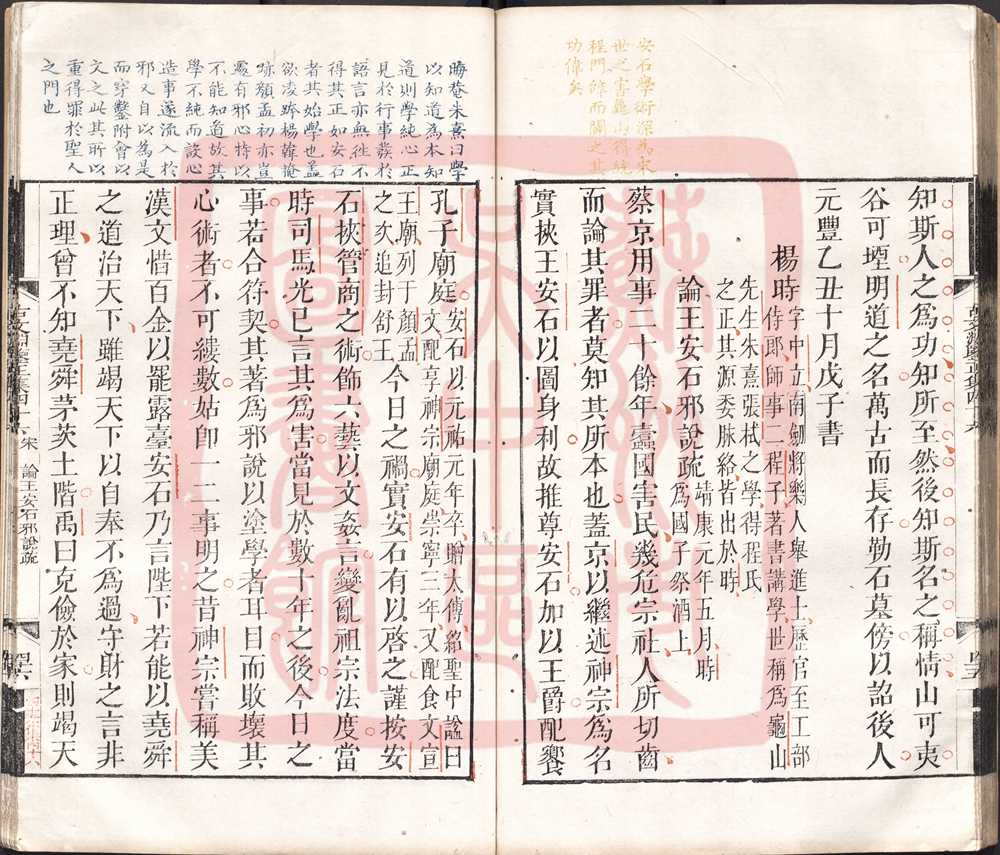 安石學術深為宋
世之害龜山得統
程門辭而闢之其
功偉矣
知斯人之爲功知所至然後知斯名之稱情山可夷
谷可堙明道之名萬古而長存勒石墓傍以詔後人
元豐乙丑十月戊子書
楊時字中立南劒將樂人舉進士歷官至工部
侍郎師事二程子著書講學世稱爲龜山
先生朱熹張栻之學得程氏
之正其源委脉絡皆出於時
論王安石邪說疏靖康元年五月時
爲國子祭酒上
蔡京用事二十餘年蠧國害民幾危宗社人所切齒
而論其罪者莫知其所本也蓋京以繼述神宗爲名
實挾王安石以圖身利故推尊安石加以王爵配饗
晦菴朱熹曰學
以知道為本知
道則學純心正
見於行事發於
語言亦無往不
得其正如安石
者其始學也盖
欲凌跨楊韓掩
跡顏孟初亦豈
遽有邪心特以
不能知道故其
學不純而設心
造事遂流入於
邪又自以為是
而穿鑿附會以
文之此其所以
重得罪於聖人
之門也
孔子廟庭安石以元祐元年卒贈太傅紹聖中諡曰
文配享神宗廟庭崇寧三年又配食文宣
王廟列于顏孟
之次追封舒王今日之禍實安石有以啓之謹按安
石挾管商之術飾六藝以文姦言變亂祖宗法度當
時司馬光已言其爲害當見於數十年之後今日之
事若合符契其著爲邪說以塗學者耳目而敗壞其
心術者不可縷數姑卽一二事明之昔神宗嘗稱美
漢文惜百金以罷露臺安石乃言陛下若能以堯舜
之道治天下雖竭天下以自奉不爲過守財之言非
正理曾不知堯舜茅茨土階禹曰克儉於家則竭天
宋
論王安石邪說疏